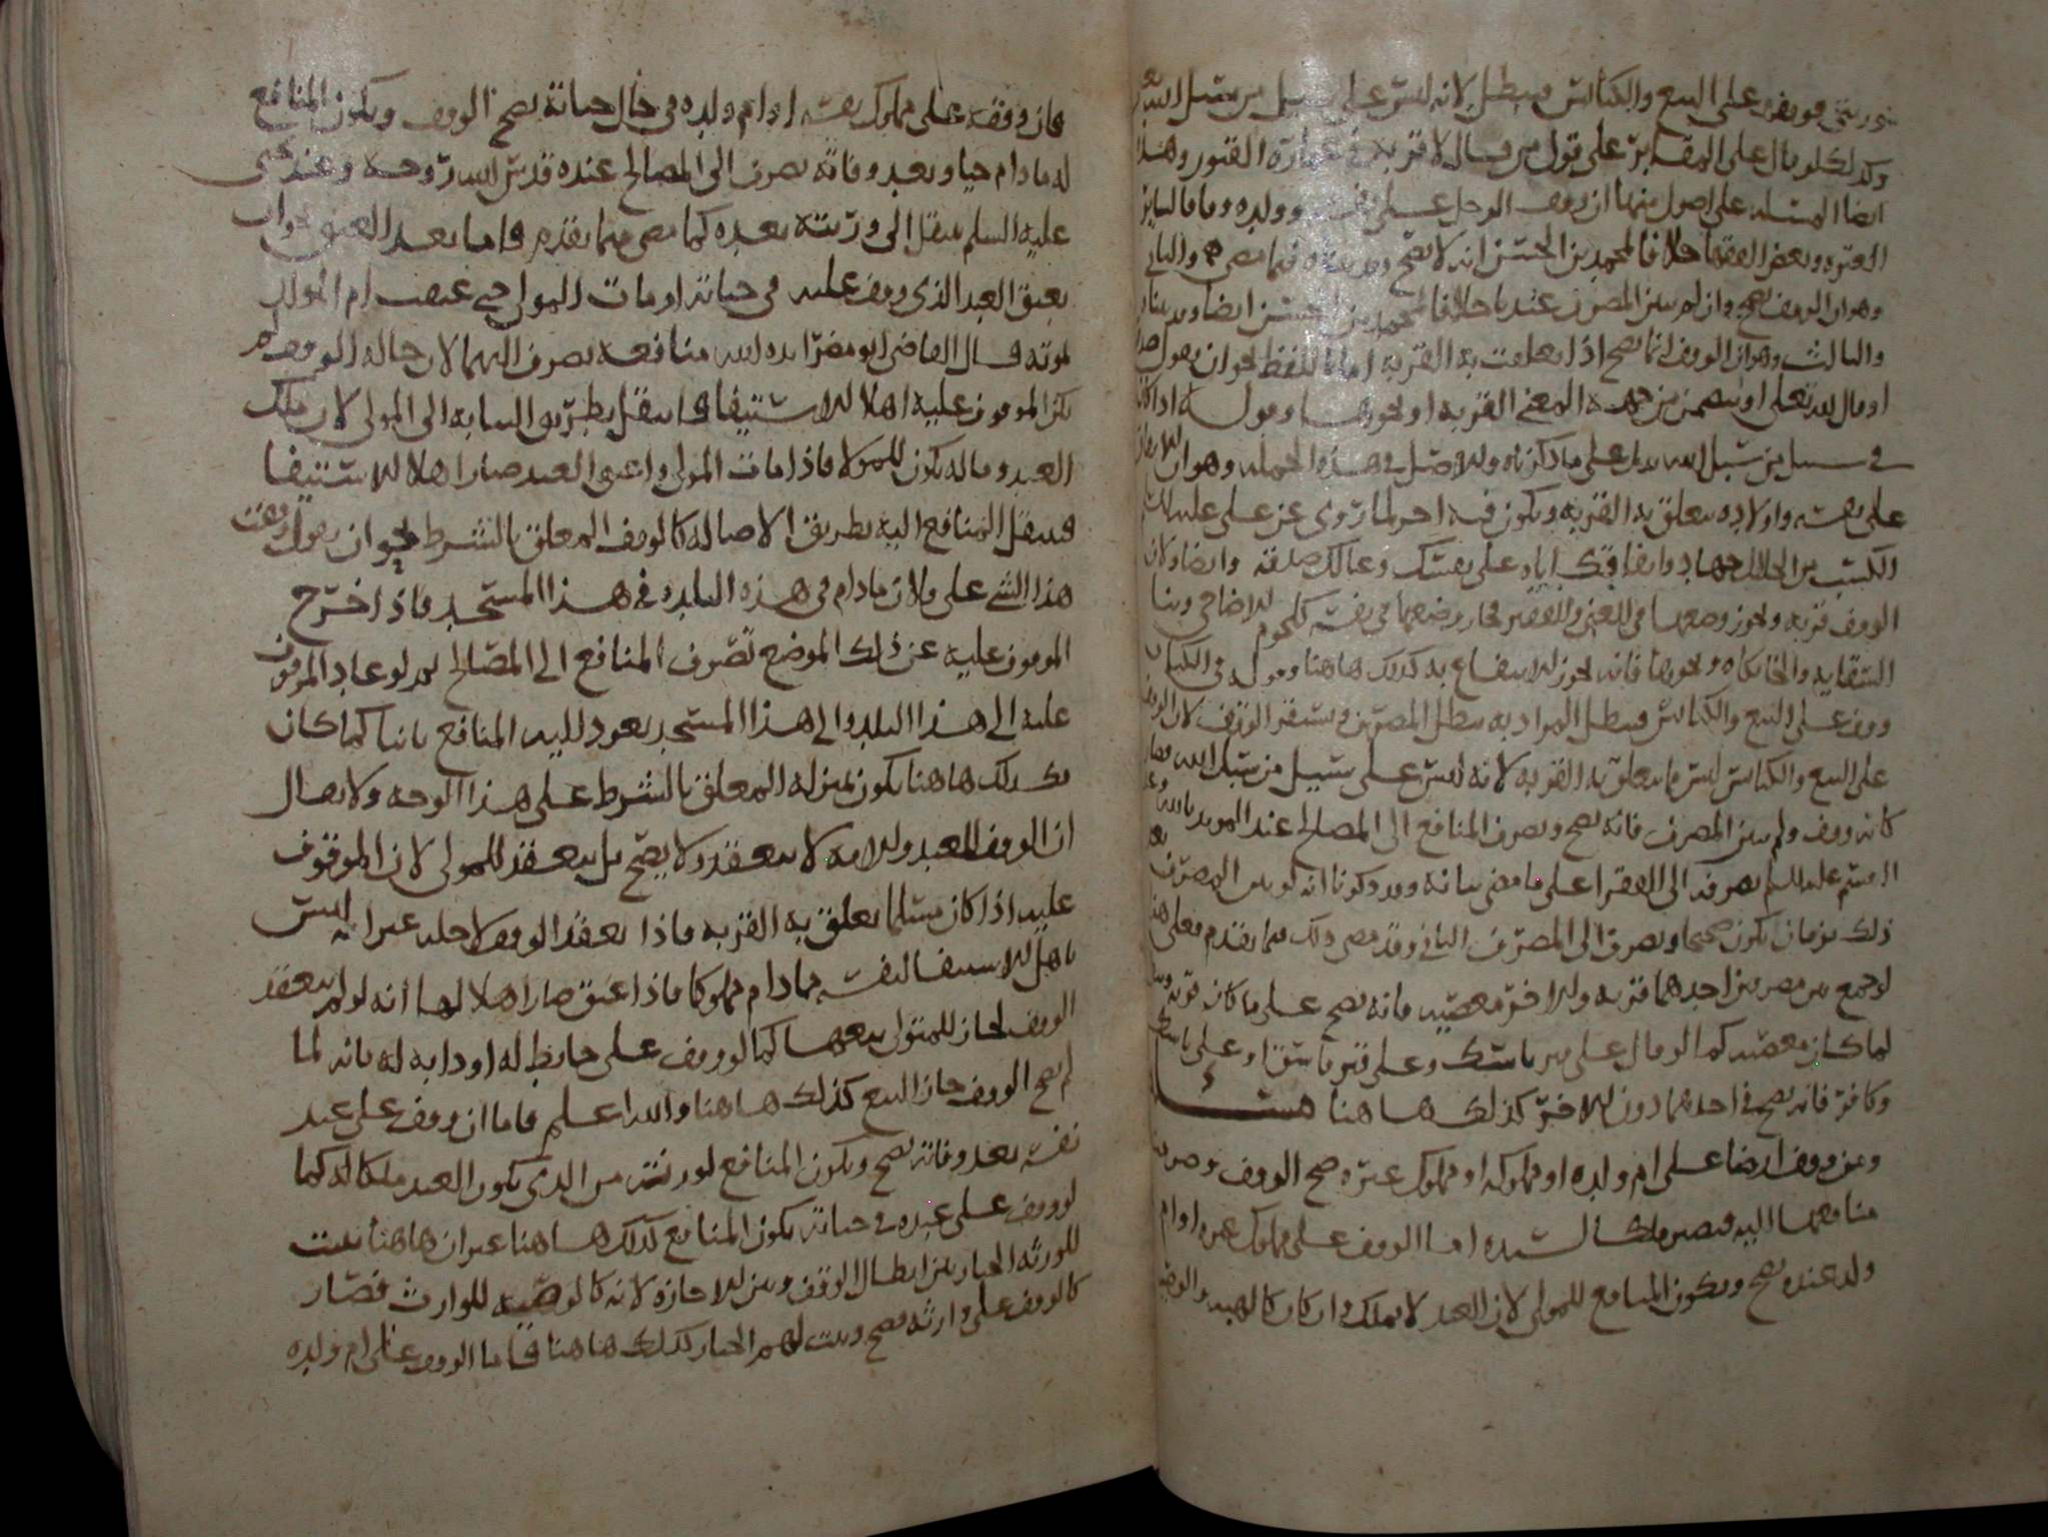 فوقفه على البيع والكنائس فيبطل لانه ليس على سبيل من سبل الله
وكذلك لو قال على المقـابر على قول من قال لا قربة في عمارة القبور وهذه
ايضا المسئلة على اصول منها ان وقف الرجل على نفسه وولده
العترة وبعض الفقها خلافا لمحمد بن الحسن انه لا يصح وقد فيما مضى والثاني
وهو ان الوقف يصح وان لم يبين المصرف عندنا خلافا لمحمد بن الحسن ايضا وقد
والثالث وهو ان الوقف انما يصح اذا تعلقت به القربة اما باللفظ نحو ان يقول هذا
او قال لله تعلى او يتضمن من جهة المعنى القربة او نحوها وقوله اذا كان
في سبيل من سبل الله يدل على ما ذكرناه والاصل في هذه الجملة وهو ان
على نفسه واولاده يتعلق به القربة ويكون فيه اجر لما روي عن علي عليلم
الكسب من الحلال جهاد وانفاقك اياه على نفسك وعيالك صدقة وايضا ولان
الوقف قربة ويجوز وضعها في الغني والفقير فجاز وضعها في نفسه كلحوم الاضاحي وبنا
السقاية والخانكاه ونحوها فانه يجوز الانتفاع به كذلك هاهنا وقوله في الكتاب
ووقف على البيع والكنائس فيبطل المراد به يبطل المصرف ويستقر الوقف لان
على البيع والكنائس ليس مما يتعلق به القربة لانه ليس على سبيل من سبل الله فصار
كانه وقف ولم يبين المصرف فانه يصح ويصرف المنافع الى المصالح عند المويد بالله
عليه السلم يصرف الى الفقرا على ما مضى بيانه وقد ذكرنا انه لو بين المصرف
ذلك بزمان يكون صحيحا ويصرف الى المصرف الثاني وقد مضى ذلك فيما تقدم فعلى هذا
لو جمع بين مصرفين احدهما قربة والاخر معصية فانه يصح على ما كان قربة
لما كان معصية كما لو قال على من ناسك وعلى فاسق او على
وكافر فانه يصح في احدهما دون الاخر كذلك هاهنا مسئلة
ومن وقف ارضا على ام ولده او مملوكه او مملوك غيره صح الوقف وصرف
منافعها اليه فتصير ملكا لسيده اما الوقف على مملوك غيره او ام
ولد عنده يصح ويكون المنافع للمولى لان العبد لا يملك وان كان كالهبة والوصية
فان وقفه على مملوك نفسه او ام ولده في حال حياته يصح الوقف ويكون المنافع
له ما دام حيا وبعد وفاته يصرف الى المصالح عنده قدس الله روحه وعند يحيى
عليه السلم ينتقل الى ورثته بعده كما مضى فيما تقدم فاما بعد العتق نحو ان
يعتق العبد الذي وقف عليه في حياته او مات المولى حتى عتقت ام الولد
بموته قال القاضي ابو مضر ايده الله منافعه يصرف اليهما لان حالة الوقف لم
يكن الموقوف عليه اهلا للاستيفا فانتقل بطريق النيابة الى المولى لان ملك
العبد وماله يكون للمولا فاذا مات المولى واعتق العبد صارا اهلا للاستيفا
فينتقل المنافع اليه بطريق الاصالة كالوقف المعلق بالشرط نحو ان يقول وقفت
هذا الشي على فلان ما دام في هذه البلدة وفي هذا المسجد فاذا خرج
الموقوف عليه عن ذلك الموضع تصرف المنافع الى المصالح ثم لو عاد الموقوف
عليه الى هذا البلد والى هذا المسجد يعود اليه المنافع ثانيا كما كان
كذلك هاهنا يكون بمنزلة المعلق بالشرط على هذا الوجه ولا يقال
ان الوقف للعبد والامة لا ينعقد ولا يصح بل ينعقد للمولى لان الموقوف
عليه اذا كان مسلما تعلق به القربة فاذا يعقد الوقف لاجله غير انه ليس
باهل للاستيفا لنفسه ما دام مملوكا فاذا عتق صار اهلا لها انه لو لم ينعقد
الوقف لجاز للمتولي بيعها كما لو وقف على حايط له او دابة له فانه لما
لم يصح الوقف جاز البيع كذلك هاهنا والله اعلم فاما ان وقف على عبد
نفسه بعد وفاته يصح ويكون المنافع لورثته من الذي يكون العبد ملكا له كما
لو وقف على عبده في حياته يكون المنافع كذلك هاهنا غير ان هاهنا يثبت
للورثة الخيار بين ابطال الوقف وبين الاجازة لانه كالوصية للوارث فصار
كالوقف على وارثه فيصح ويثبت لهم الخيار كذلك هاهنا فاما الوقف على ام ولده